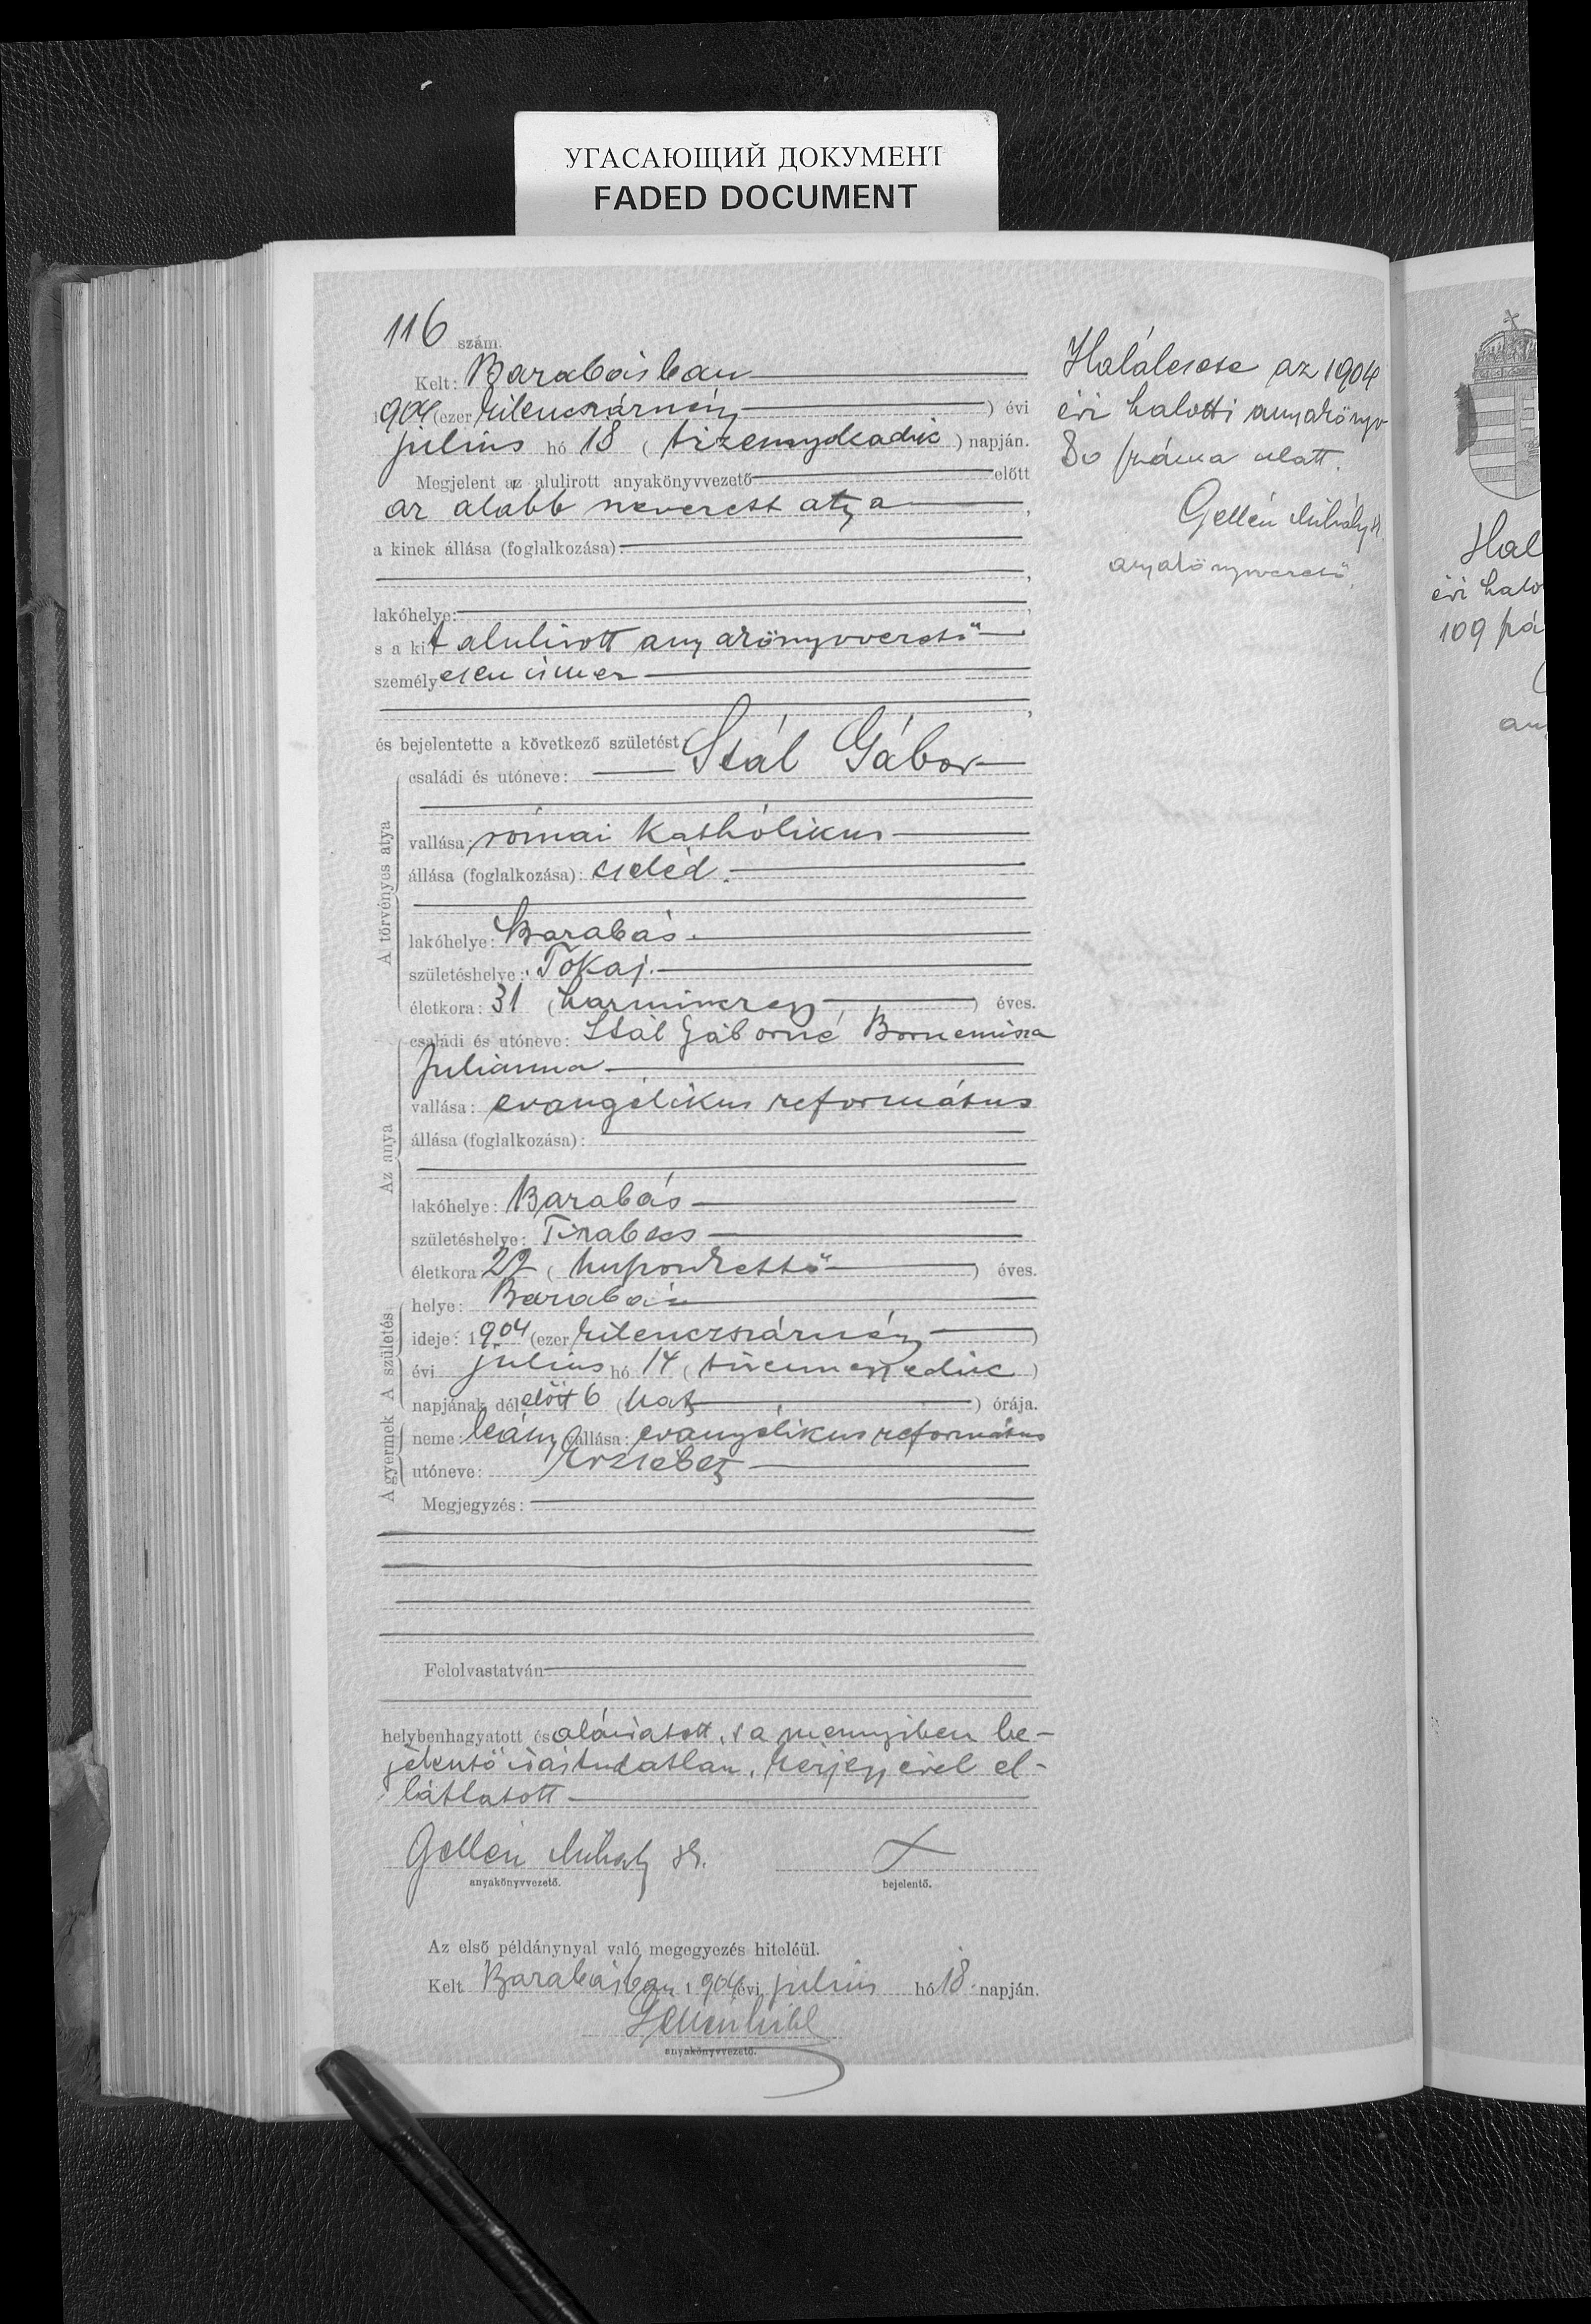 УГАСАЮЩИЙ ДОКУМЕНТ
FADED DOCUMENT
116 szám.
Kelt: Barabásban
1904 (ezer kilenczszáznégy) évi
julius hó 18 (tizennyolcadik) napján.
Megjelent az alulirott anyakönyvvezető előtt
az alább nevezett atya,
a kinek állása (foglalkozása):
,
lakóhelye: ,
s a kit alulirott anyakönyvvezető
személyesen ismer
,
és bejelentette a következő születést:
A törvényes atya
családi és utóneve: Stál Gábor
vallása: római katholikus
állása (foglalkozása): cseléd.
lakóhelye: Barabás.
születéshelye: Tokaj.
életkora: 31 (harminczegy) éves.
Az anya
családi és utóneve: Stál Gáborné Bornemisza
Julianna
vallása: evangélikus református
állása (foglalkozása):
lakóhelye: Barabás
születéshelye: Tiszabecs
életkora 22 (huszonkettő) éves.
A születés
helye: Barabás
ideje: 1904 (ezer kilenczszáznégy)
évi julius hó 14 (tizennegyedik)
napjának délelőtt 6 (hat) órája.
A gyermek
neme: leány vallása: evangélikus református
utóneve: Erzsébet
Megjegyzés:
Felolvastatván
helybenhagyatott és aláiratott, s a mennyiben be-
jelentő irástudatlan, kézjegyével el-
láttatott
Gellén Mihály sk.
anyakönyvvezető.
x
bejelentő.
Az első példánynyal való megegyezés hiteléül.
Kelt Barabásban 1904 évi julius hó 18 napján.
Gellén Mihál
anyakönyvvezető.
Halálesete az 1904
évi halotti anyakönyv
80 száma alatt.
Gellén Mihály sk.
anyakönyvvezető.
Hal
évi halo
109 szá
an